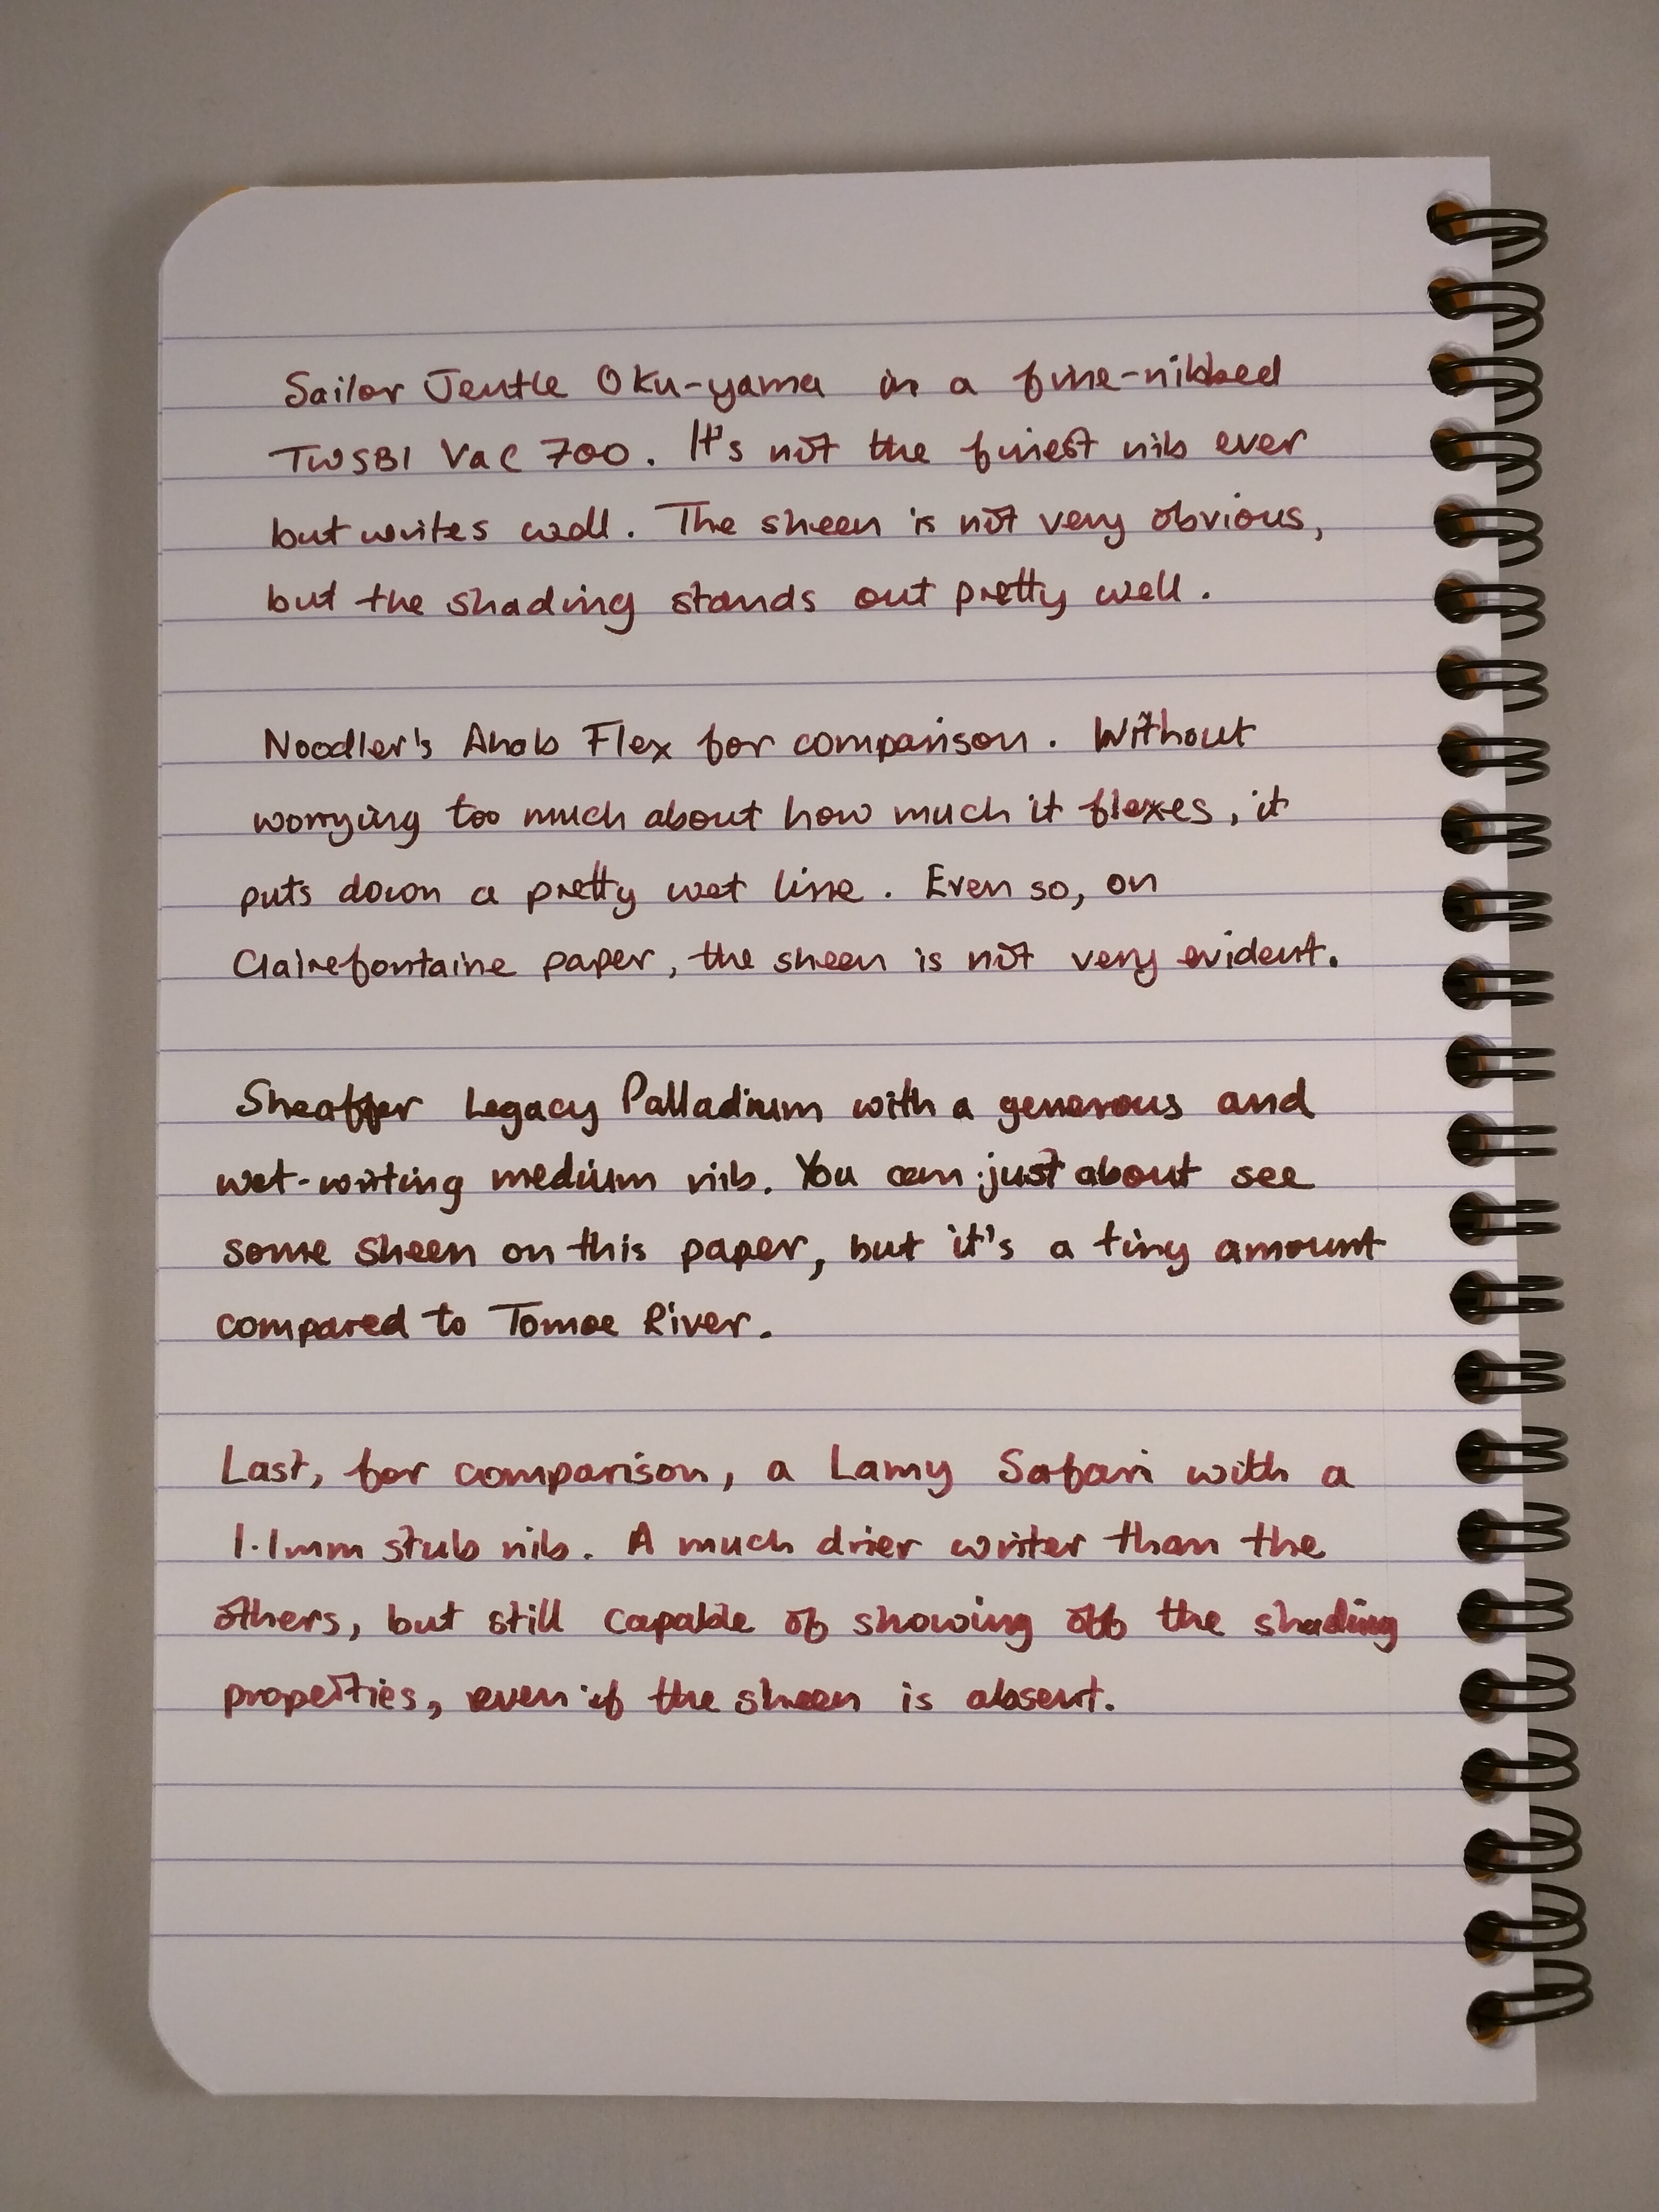 Sailor Jentle Oku-yama in a fine-nibbed
TWSBI Vac 700. It's not the finest nib ever
but writes well. The sheen is not very obvious,
but the shading stands out pretty well.
Noodler's Ahab Flex for comparison. Without
worrying too much about how much it flexes, it
puts down a pretty wet line. Even so, on
Clairefontaine paper, the sheen is not very evident.
Sheaffer Legacy Palladium with a generous and
wet-writing medium nib. You can just about see
some sheen on this paper, but it's a tiny amount
compared to Tomoe River.
Last, for comparison, a Lamy Safari with a
1.1mm stub nib. A much drier writer than the
others, but still capable of showing off the shading
properties, even if the sheen is absent.